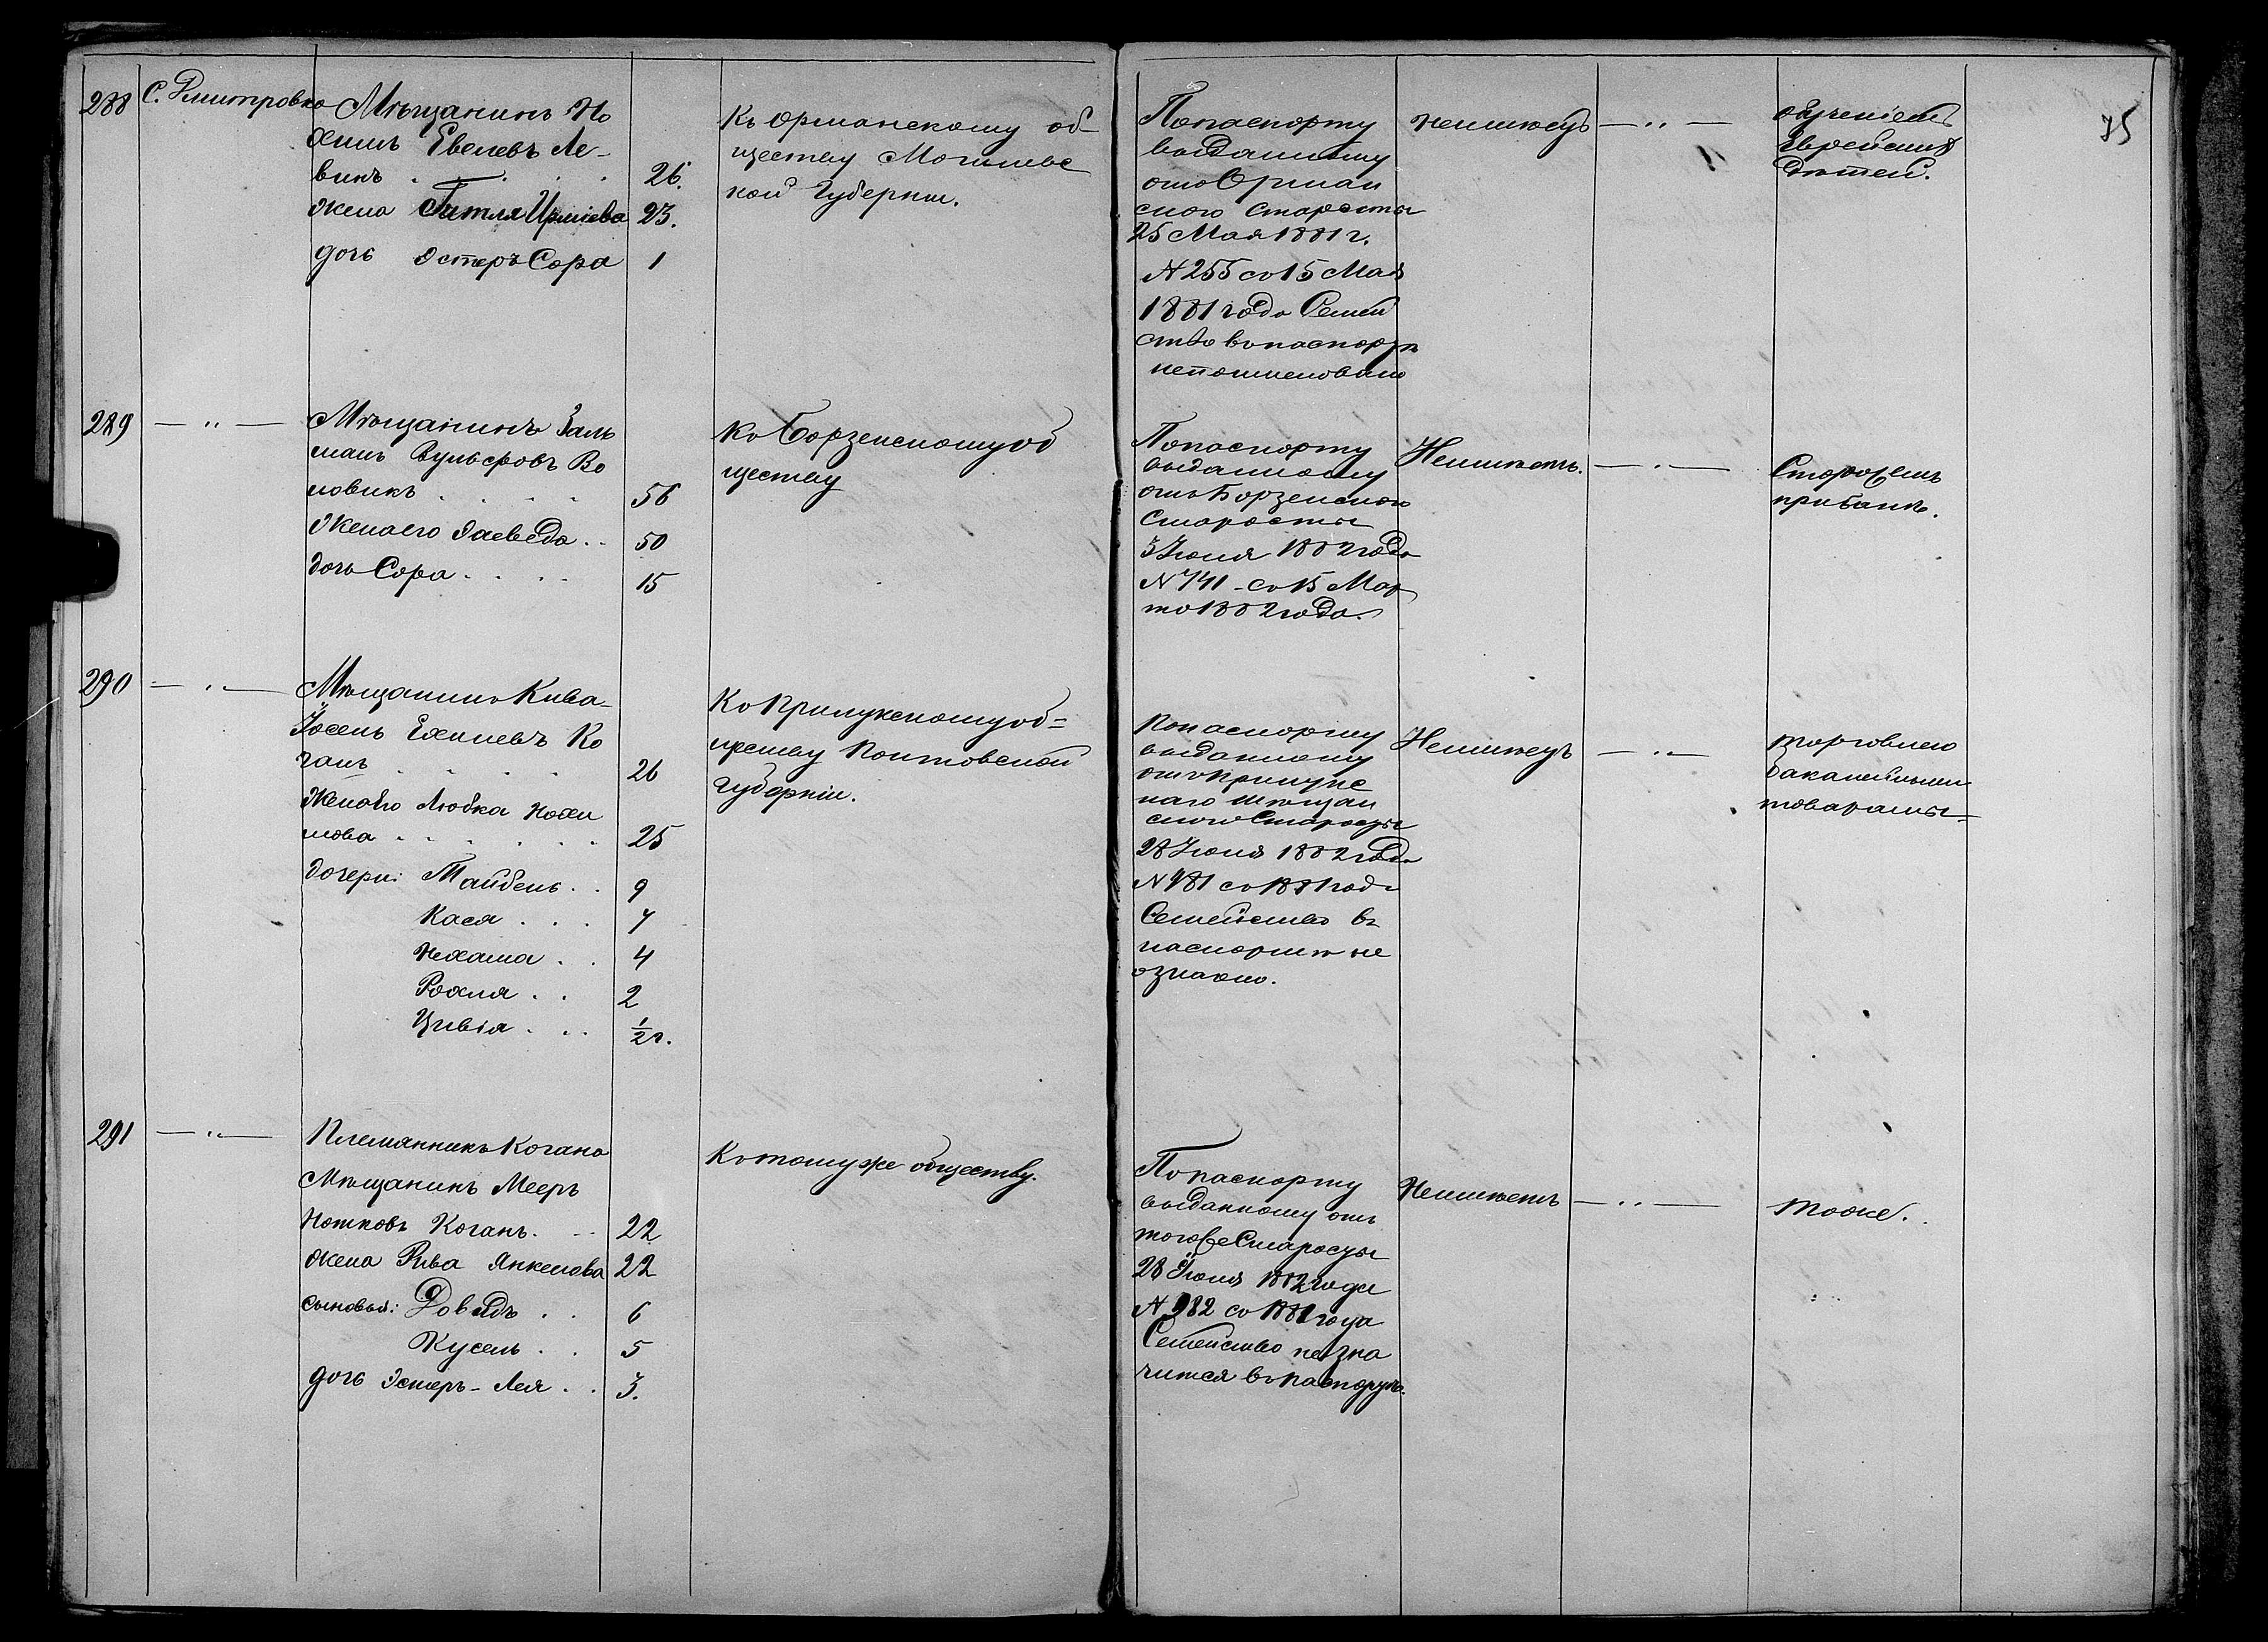 75
288
С. Дмитровка
Мѣщанинъ Но
химъ Евелевъ Ле-
винъ . . . . 26.
жена Гитля Иршiева 23.
дочь Эстеръ Сора 1
Къ Оршанскому об-
ществу Могилевс
кой Губернiи.
По паспорту
выданному
отъ Оршан
скаго Старосты
25 Мая 1881 г.
№ 255 съ 15 Мая
1881 года Семей
ство въ паспортѣ
непоименовано
неимѣетъ
— " —
обученiемъ
Еврейскихъ
дѣтей.
289
— " —
Мѣщанинъ Заль
манъ Вульфовъ Во
ловикъ . . . . 56
Жена его Двоседа . . 50
дочь Сора . . . . 15
Къ Борзенскому об
ществу
По паспорту
выданному
отъ Борзенскаго
Старосты
3 Июня 1882 года
№ 741 - съ 15 Мар
та 1882 года.
Неимѣетъ.
— " —
Сторожемъ
при банѣ.
290
— " —
Мѣщанинъ Кива-
Iосель Ехилевъ Ко
ганъ . . . . 26
Жена его Любка Нохи
мова . . . . . . 25
дочери: Майбень . . 9
Кася . . . 7
Нехама . . 4
Рохля . . 2
Цивiя . . . 1/2 г.
Къ Прилукскому об=
ществу Полтовской
Губернiи.
По паспорту
выданному
отъ Прилукс
каго Мѣщан
скаго Старосты
28 Июня 1882 года
№ 981 съ 1881 года
Семейство въ
паспортѣ не
означено.
Неимѣетъ
— " —
торговлею
бакалейными
товарамы=
291
— " —
Племянникъ Когана
Мѣщанинъ Мееръ
Нотковъ Коганъ. . . 22
жена Рива Янкелева 22
сыновья: Довидъ . . 6
Кусель . . 5
дочь Эстеръ-Лея . . 3.
Къ тому же обществу.
По паспорту
выданному отъ
того же Старосты
28 Iюня 1882 года
№ 982 съ 1881 года
Семейство не зна
чится въ паспортѣ.
Неимѣетъ
— " —
тоже.